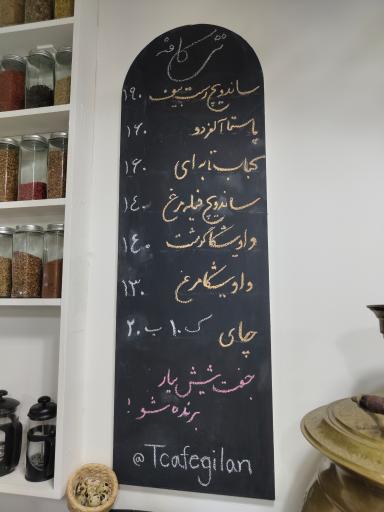 تی کافه
ساندویچ رست بیف ۱۹۰
پاستا آلفردو ۱۶۰
کباب تابه ای ۱۶۰
ساندویچ فیله مرغ ۱۴۰
واویشکا گوشت ۱۴۰
واویشکا مرغ ۱۳۰
چای ک ۱۰ ب ۲۰
جفت شیش بیار
برنده شو!
@Tcafegilan